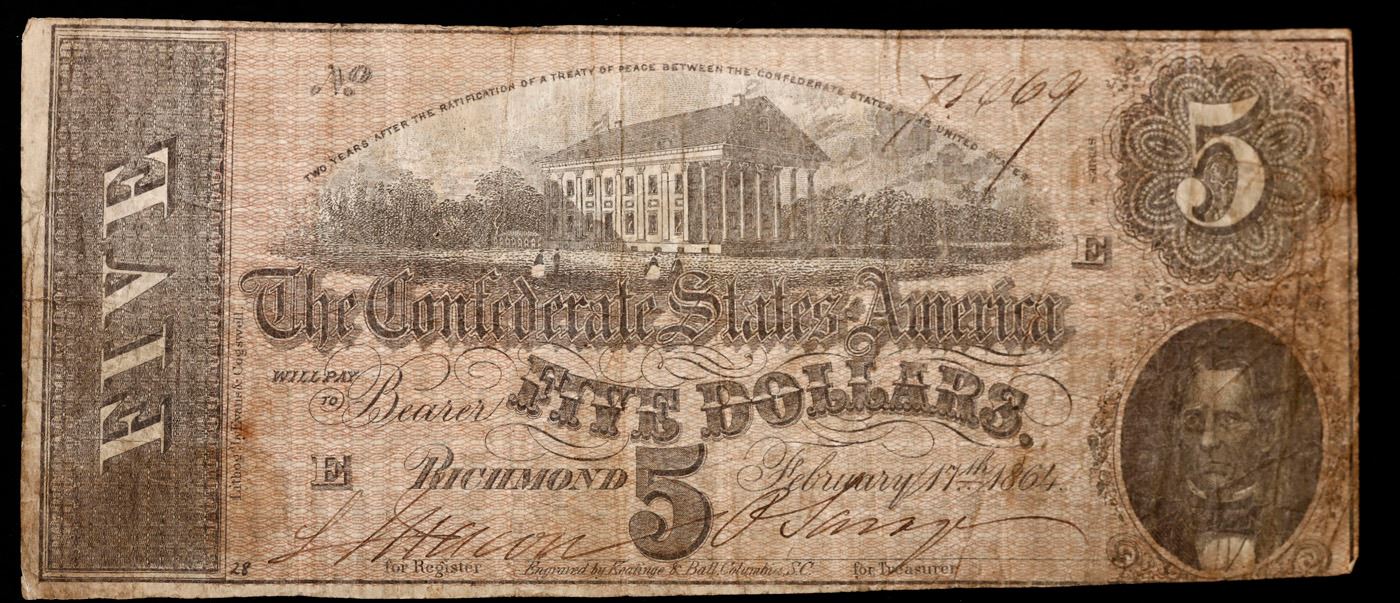 FIVE
No
78069
TWO YEARS AFTER THE RATIFICATION OF A TREATY OF PEACE BETWEEN THE CONFEDERATE STATES AND UNITED STATES
5
SERIES
E
The Confederate States of America
WILL PAY
TO Bearer
FIVE DOLLARS.
E RICHMOND 5 February 17th 1864.
28
for Register
Engraved by Keatinge & Ball, Columbia, S.C.
for Treasurer